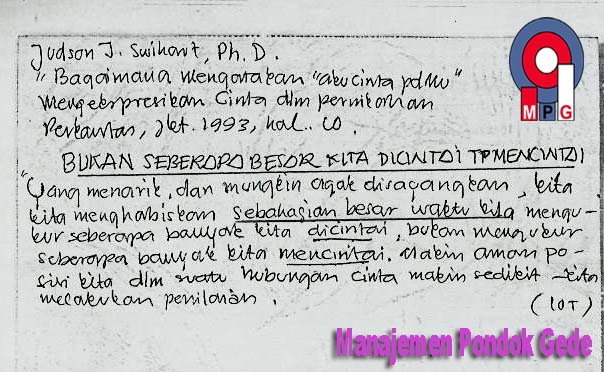 Judson J. Swihart, Ph.D.
"Bagaimana mengatakan "aku cinta pdMu"
Mengekspresikan Cinta dlm pernikahan
Perkantas, Jkt. 1993, hal..
BUKAN SEBERAPA BESAR KITA DICINTAI TP MENCINTAI
"Yang menarik, dan mungkin agak disayangkan, kita
kita menghabiskan sebahagian besar waktu kita mengu-
kur seberapa banyak kita dicintai, bukan mengukur
seberapa banyak kita mencintai. Makin aman po-
sisi kita dlm suatu hubungan cinta makin sedikit kita
melakukan penilaian.
MPG
Manajemen Pondok Gede